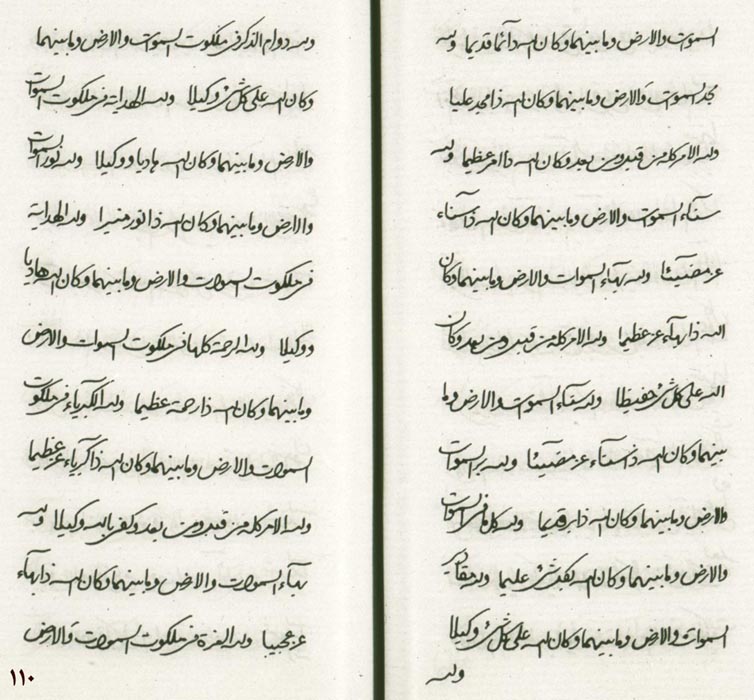 السموات والارض وما بينهما وكان الله دآئما قديما ولله
مجد السموات والارض وما بينهما وكان الله ذا مجد عليا
ولله الامر كله من قبل ومن بعد وكان الله ذا امر عظيما ولله
سنآء السموات والارض وما بينهما وكان الله ذا سنآء
عز مضيئا ولله بهآء السموات والارض وما بينهما وكان
الله ذا بهآء عز عظيما ولله الامر كله من قبل ومن بعد وكان
الله على كل شئ حفيظا ولله سنآء السموات والارض وما
بينهما وكان الله ذا سنآء عز مضيئا ولله بر السموات
والارض وما بينهما وكان الله ذا بر قديما ولله كل ما فى السموات
والارض وما بينهما وكان الله بكل شئ عليما ولله
السموات والارض وما بينهما وكان الله على كل شئ وكيلا
ولله
ولله دوام الذكر فى ملكوت السموات والارض وما بينهما
وكان الله على كل شئ وكيلا ولله الهداية فى ملكوت السموات
والارض وما بينهما وكان الله هاديا ووكيلا ولله نور السموات
والارض وما بينهما وكان الله ذا نور منيرا ولله الهداية
فى ملكوت السموات والارض وما بينهما وكان الله هاديا
ووكيلا ولله الرحمة كلها فى ملكوت السموات والارض
وما بينهما وكان الله ذا رحمة عظيما ولله الكبرياء فى ملكوت
السموات والارض وما بينهما وكان الله ذا كبرياء عز عظيما
ولله الامر كله من قبل ومن بعد وكفى بالله وكيلا ولله
بهآء السموات والارض وما بينهما وكان الله ذا بهآء
عز عجيبا ولله العزة فى ملكوت السموات والارض
١١٠